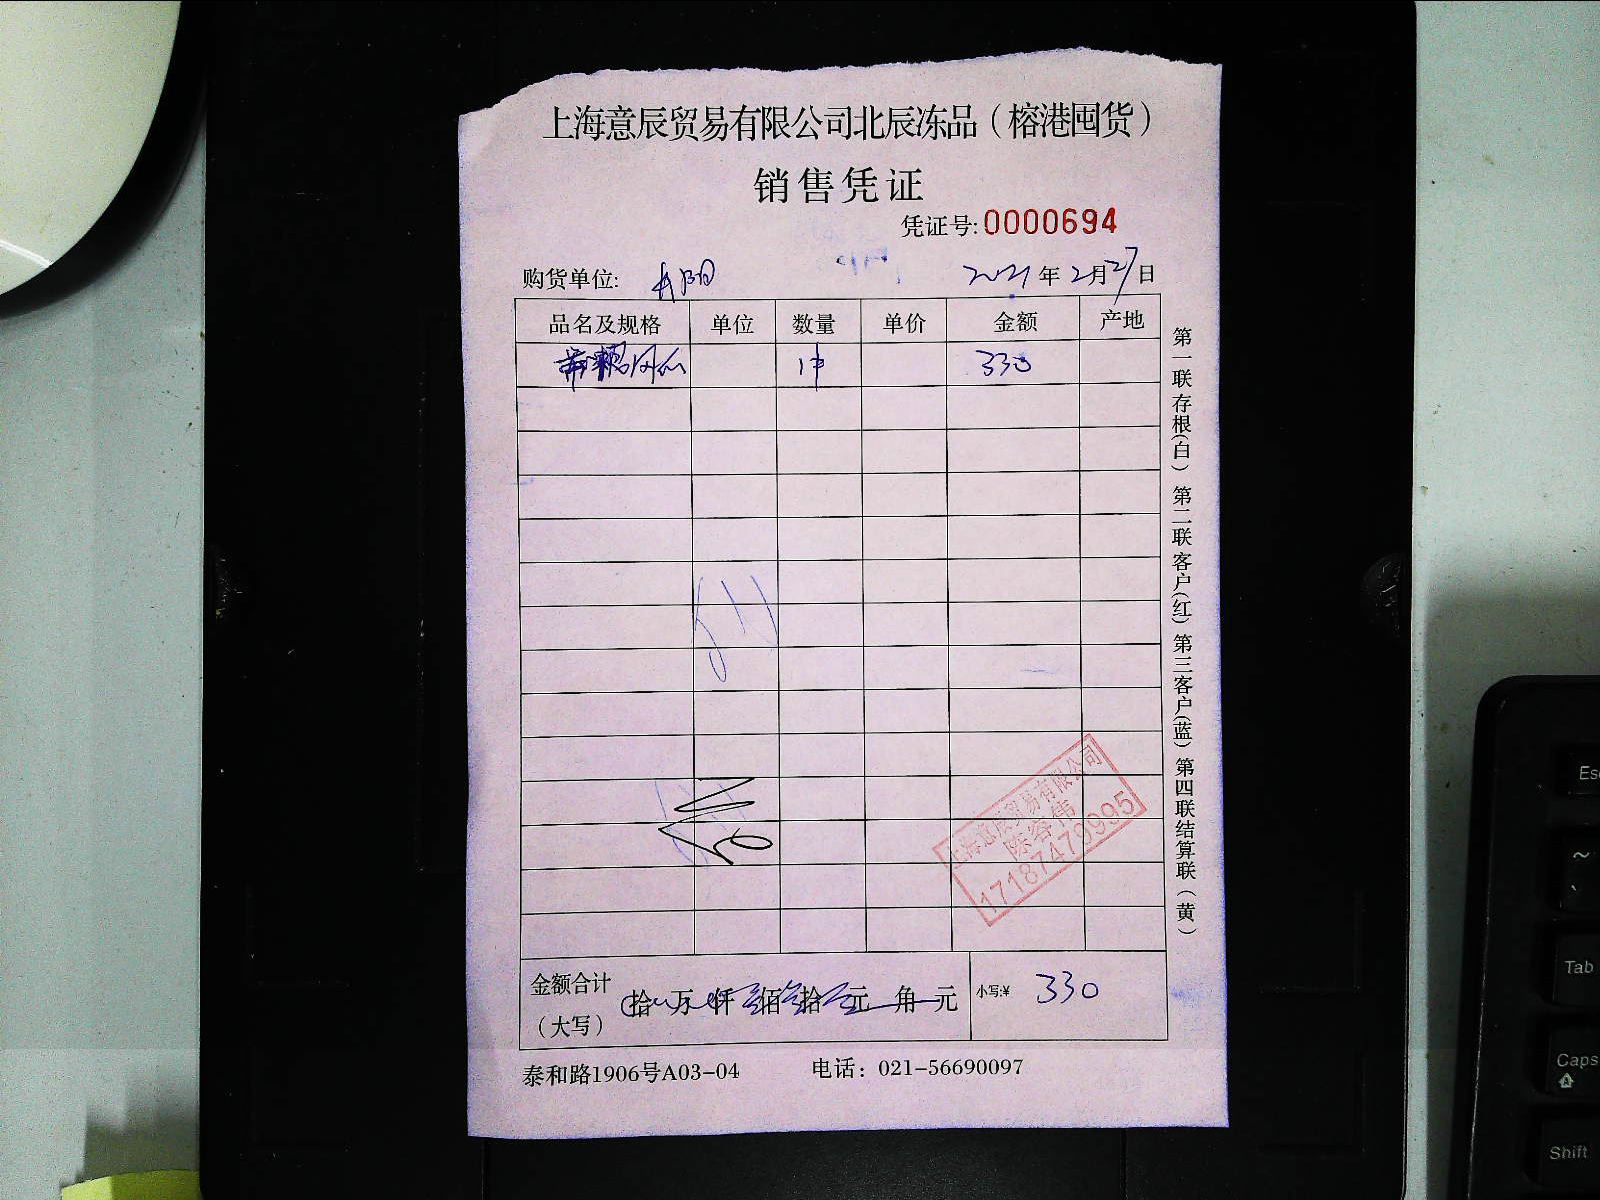 上海意辰贸易有限公司北辰冻品（榕港囤货）
销售凭证
凭证号:0000694
购货单位: 丹阳 2021年2月27日
品名及规格 单位 数量 单价 金额 产地
1件 330
第一联存根(白) 第二联客户(红) 第三客户(蓝) 第四联结算联(黄)
上海意辰贸易有限公司
陈容伟
17187479995
金额合计
（大写） 拾 万 仟 叁佰叁拾 元 角 元 小写:¥ 330
泰和路1906号A03-04 电话：021-56690097
Esc
~
Tab
Caps
Shift